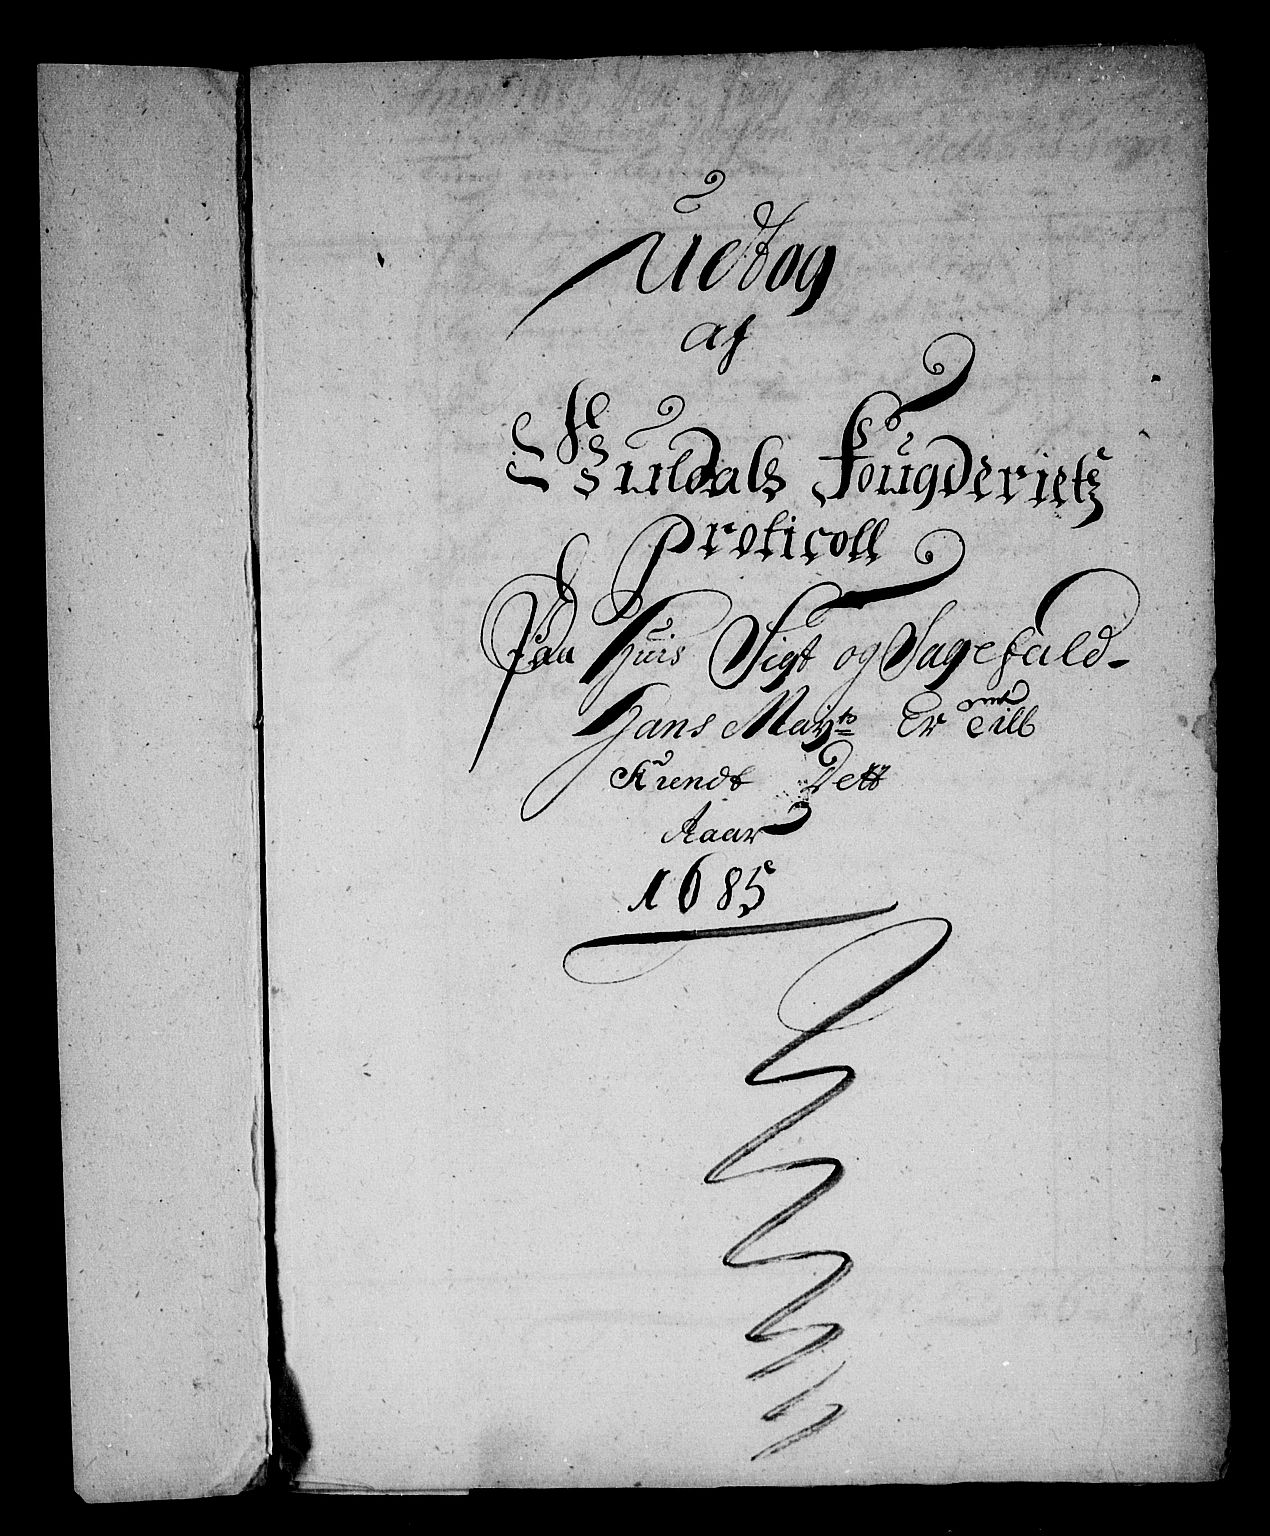 Udtog
af
Guldals Fougderietz
Proticoll
Paa huis Sigt og Sagefald-
Hans Mayts Er omt Till
Kiendt Dett
Aaar
1685